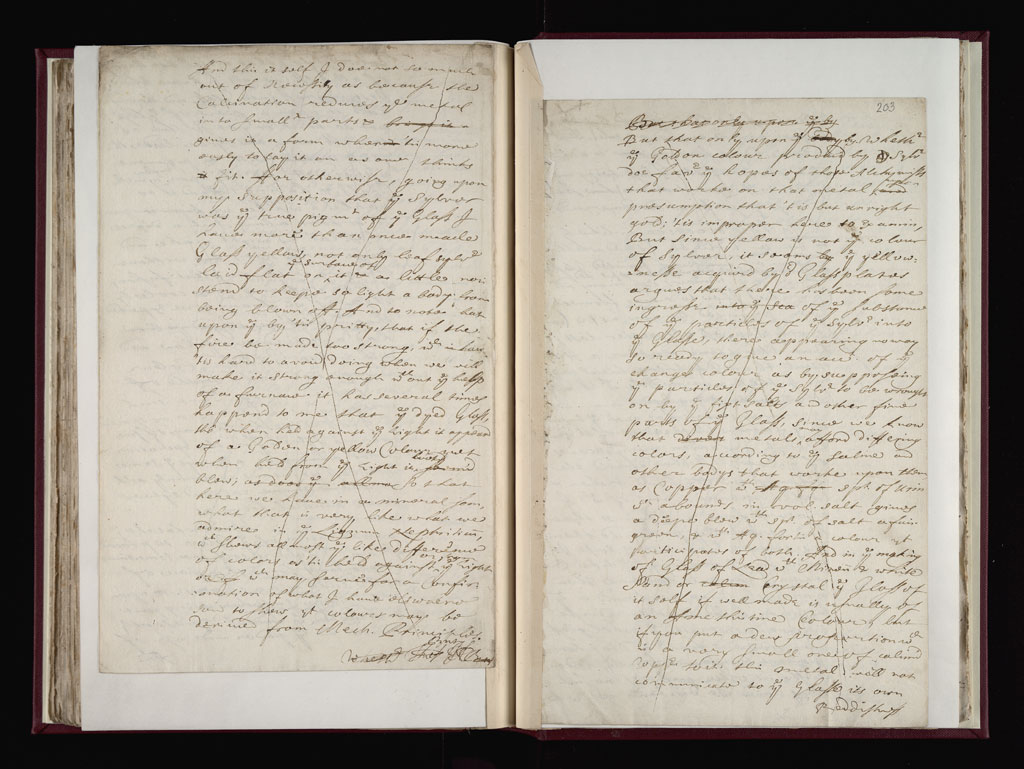 And this it self I doe not so much
out of necessity as because the
Calcination reduces ye metal
into small parts &
gives it a form more
to lay it on as one thinks
fit. For otherwise, going upon
my supposition that ye Sylver
was ye true pigmt of ye Glass I
have more than once made
Glass yellow, not only leaf sylvr
laid flat on ye surface of it a little
to keepe so light a body from
being blown off. And to note that
upon ye by 'tis pritty, that if the
fire be made too strong, wch
'tis hard to avoid doing when we will
make it strong enough wthout ye help
of a furnace it has several times
happend to me that ye dyed Glass,
tho when held against ye light it appeard
of a Golden or yellow Colour, yet
when held from ye light it lookd
blew, so that
here we have in a mineral
what that is very like what we
admire in ye Lignum Nephriticum,
wch shews allmost ye like difference
of colors as 'tis held against ye light
or from it wch may serve for a Confir
mation of what I have elswhere
said to shew, yt colours may be
derived from Mech. Principles.
203
But that only upon ye by
But that only upon ye by. Whethr
ye Golden colour producd by Sylvr
doe favor ye hopes of those Alchymists
that worke on that metal upon
presumption that it is but a whight
gold: 'tis improper here to examin,
But since yellow is not ye colour
of Sylver, it seems ye yellow-
nesse acquird by ye Glass plates
argues that there has been some
ingresse of ye substance
of ye particles of ye Sylvr into
ye Glasse, there appearing no way
so ready to give an acct of ye
change of colour as by supposing
ye particles of ye Sylvr to be wrought
on by ye fixt salts and other fine
parts of ye Glass, since we know
that metals may afford differing
colors, according to ye saline and
other bodys that worke upon them
as Copper wth spt of Urin
wch abounds in vol. salt gives
a deepe blew wth spt of salt again
green, & wth Aq. fortis a colour yt
participates of both. And in ye making
of Glass of Lead wth Minium & white
Sand or Crystal ye Glass of
it self if well made is usually of
an Amethistine Colour, but
if you put a due proportion wch
is a very small one of calcind
Coper to it, this metal will not
communicate to ye Glasse its own
Reddishness